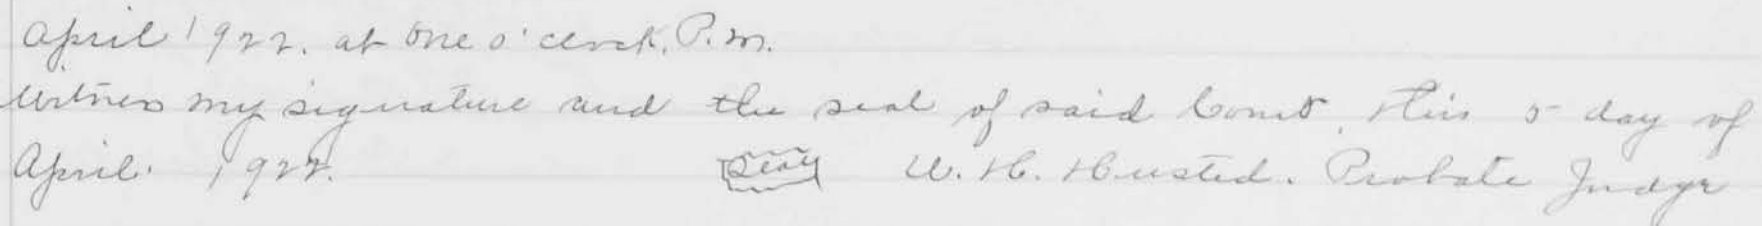 April 1922. at One o'clock. P.M.
Witness my signature and the seal of said Court, this 5 day of
April. 1922. Seal W. H. Husted. Probate Judge